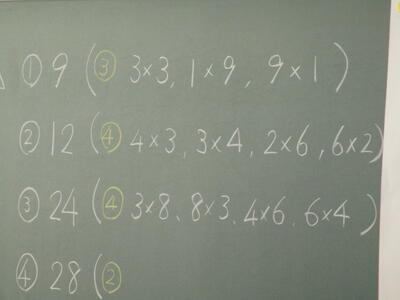 ① 9 (③ 3×3, 1×9, 9×1)
② 12 (④ 4×3, 3×4, 2×6, 6×2)
③ 24 (④ 3×8、8×3、4×6、6×4)
④ 28 (②